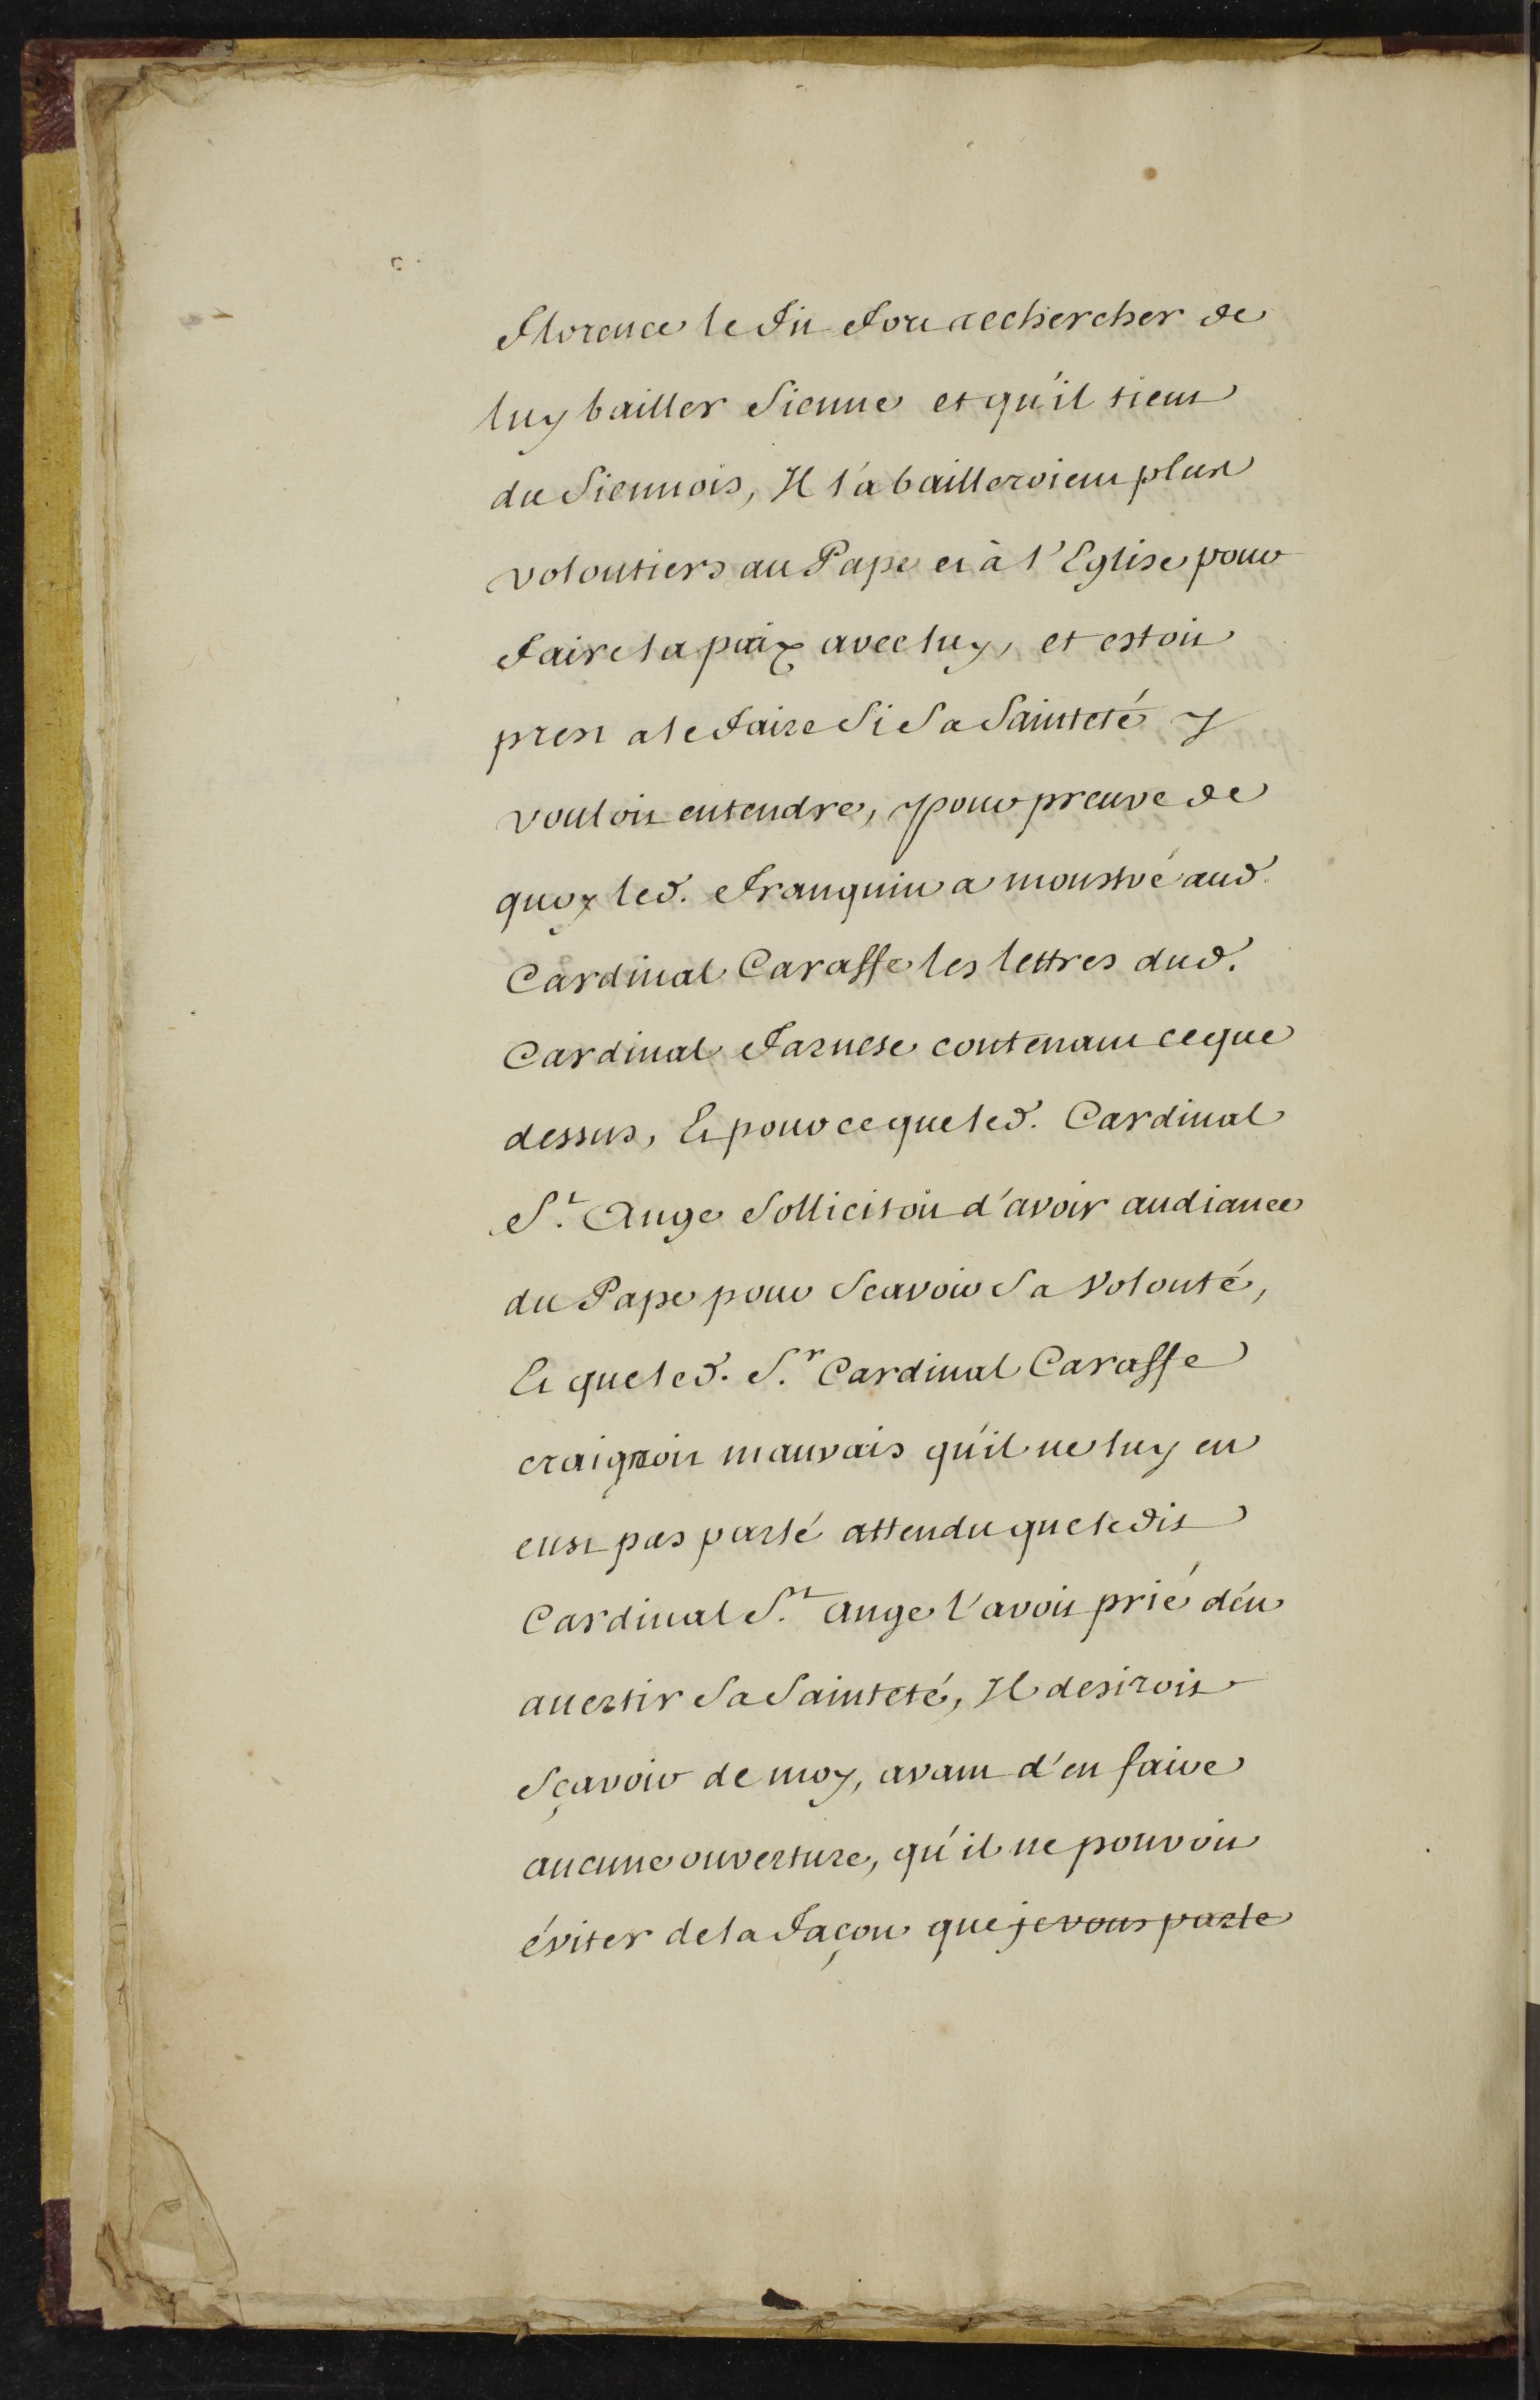 Florence le fit fort rechercher de
luy bailler Sienne et qu'il tient
du Siennois, Il l'a bailleroient plus
volontiers au Pape et à l'Eglise pour
faire la paix avec luy, et estoit
prest a le faire si Sa Sainteté y
vouloit entendre, pour preuve de
quoy led. Franquin a monstré aud.
Cardinal Caraffe les lettres dud.
Cardinal Farnese contenant ce que
dessus, Et pour ce que led. Cardinal
St. Ange Sollicitoit d'avoir audiance
du Pape pour Scavoir Sa Volonté,
Et que led. Sr. Cardinal Caraffe
craignoit mauvais qu'il ne luy en
eust pas parlé attendu que ledit
Cardinal St. Ange l'avoit prié d'en
avertir Sa Sainteté, Il desiroit
Sçavoir de moy, avant d'en faire
aucune ouverture, qu'il ne pouvoit
éviter de la façon que je vous parle